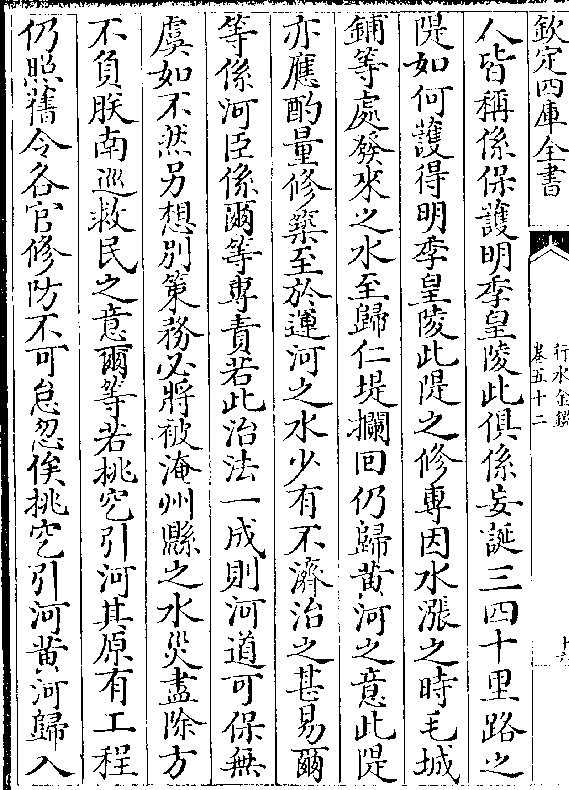 欽定四庫全書
行水金鑑
卷五十二
人皆稱係保護明季皇陵此俱係妄誕三四十里路之
隄如何護得明季皇陵此隄之修專因水漲之時毛城
鋪等處發來之水至歸仁堤攔回仍歸黄河之意此隄
亦應酌量修築至於運河之水少有不濟治之甚易爾
等係河臣係爾等專責若此治法一成則河道可保無
虞如不然另想別策務必將被淹州縣之水災盡除方
不負朕南巡救民之意爾等若挑完引河其原有工程
仍照舊令各官修防不可怠忽俟挑完引河黄河歸入